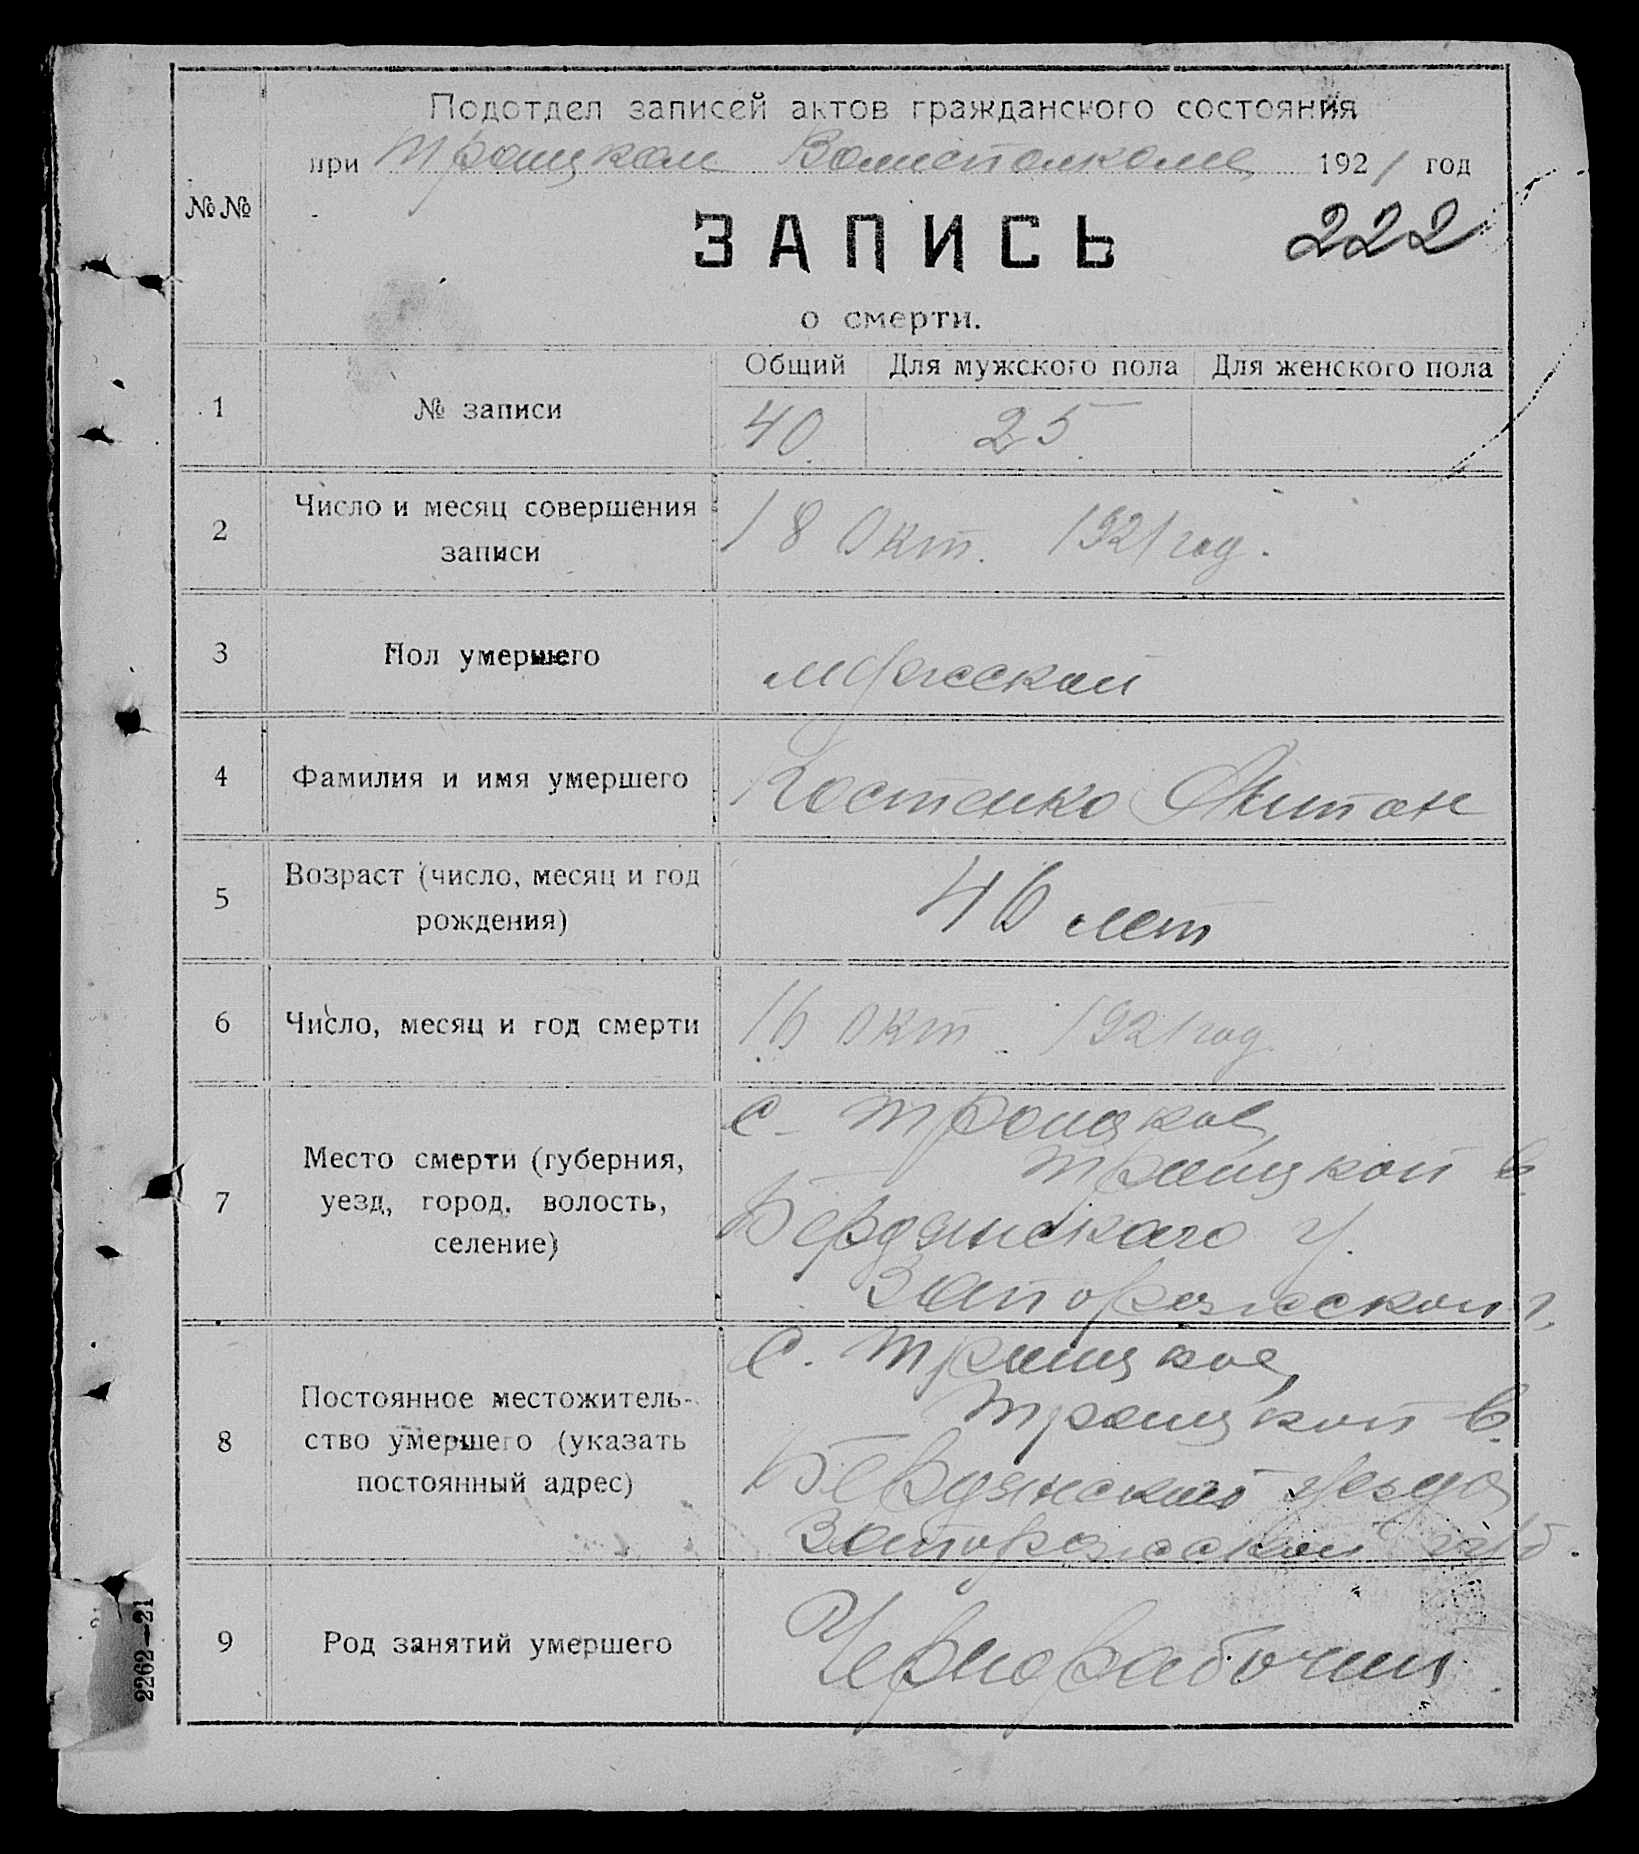 Подотдел записей актов гражданского состояния
при Троицком Волисполкоме 1921 год
№№
ЗАПИСЬ
222
о смерти.
Общий Для мужского пола Для женского пола
1 № записи 40. 25.
2 Число и месяц совершения записи 18 Окт. 1921 год.
3 Пол умершего мужской
4 Фамилия и имя умершего Костенко Антон
5 Возраст (число, месяц и год рождения) 46 лет
6 Число, месяц и год смерти 16 Окт. 1921 год
7 Место смерти (губерния, уезд, город, волость, селение)
с. Троицкое,
Троицкой в.
Бердянского у.
Запорожской г.
8 Постоянное местожительство умершего (указать постоянный адрес)
С. Троицкое,
Троицкой в.
Бердянского уезда
Запорожской губ.
9 Род занятий умершего Чернорабочий
2262—21